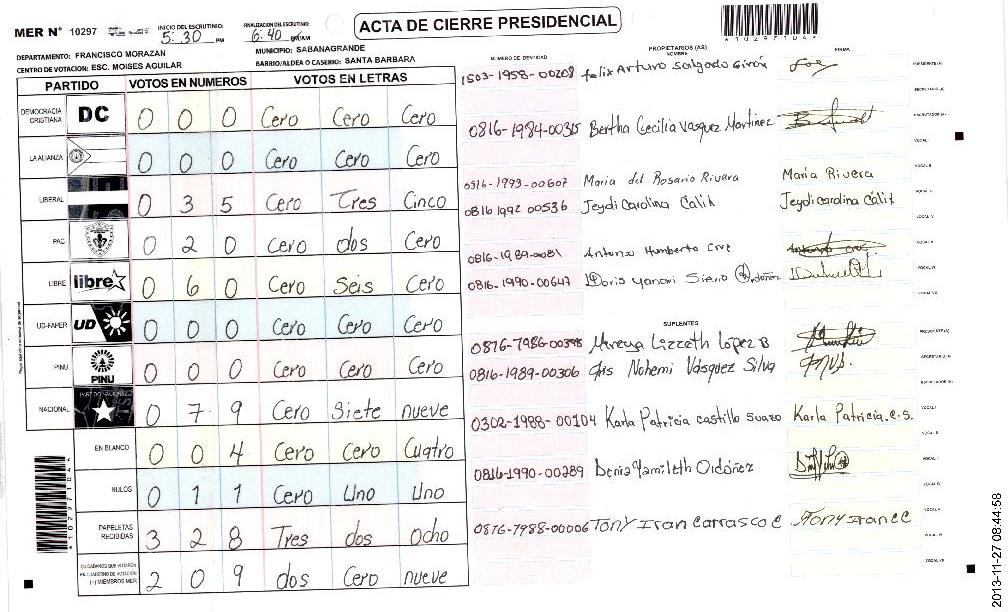 MER N° 10297
INICIO DEL ESCRUTINIO: 5:30 PM
FINALIZACION DEL ESCRUTINIO: 6:40
ACTA DE CIERRE PRESIDENCIAL
*10297104*
DEPARTAMENTO: FRANCISCO MORAZAN
MUNICIPIO: SABANAGRANDE
CENTRO DE VOTACION: ESC. MOISES AGUILAR
BARRIO/ALDEA O CASERIO: SANTA BARBARA
PARTIDO VOTOS EN NUMEROS VOTOS EN LETRAS
DEMOCRACIA CRISTIANA DC 0 0 0 Cero Cero Cero
LA ALIANZA 0 0 0 Cero Cero Cero
LIBERAL 0 3 5 Cero Tres Cinco
PAC 0 2 0 Cero dos Cero
LIBRE libre 0 6 0 Cero Seis Cero
UD-FAPER UD 0 0 0 Cero Cero Cero
PINU PINU 0 0 0 Cero Cero Cero
NACIONAL 0 7 9 Cero Siete nueve
EN BLANCO 0 0 4 Cero Cero Cuatro
NULOS 0 1 1 Cero Uno Uno
PAPELETAS RECIBIDAS 3 2 8 Tres dos Ocho
CIUDADANOS QUE VOTARON EN CUADERNO DE VOTACION (+) MIEMBROS MER 2 0 9 dos Cero nueve
NUMERO DE IDENTIDAD PROPIETARIOS (AS) NOMBRE FIRMA
1503-1958-00208 felix Arturo Salgado Girón PRESIDENTE(A)
SECRETARIO(A)
0816-1984-00315 Bertha Cecilia Vasquez Martinez ESCRUTADOR(A)
VOCAL I
0816-1993-00607 Maria del Rosario Rivara Maria Rivera VOCAL II
0816 1992 00536 Jeydi Carolina Calix Jeydi Carolina Cálix
VOCAL IV
0816-1989-0081 Antonio Humberto Cruz
0816-1990-00647 Doris Yanori Ordoñez VOCAL VI
VOCAL VII
SUPLENTES
Mireya Lizzeth López B PRESIDENTE(A)
0816-1989-00306 Nohemi Vásquez Silva SECRETARIO(A)
ESCRUTADOR(A)
0302-1988-00104 Karla Patricia Castillo Suazo Karla Patricia.C.S. VOCAL I
VOCAL II
0816-1990-00289 Denia Yamileth Ordóñez
VOCAL IV
VOCAL V
0876-7988-00006 Tony Iran Carrasco C Tony Iran C C
VOCAL VI
VOCAL VII
*10297104*
2013-11-27 08:44:58